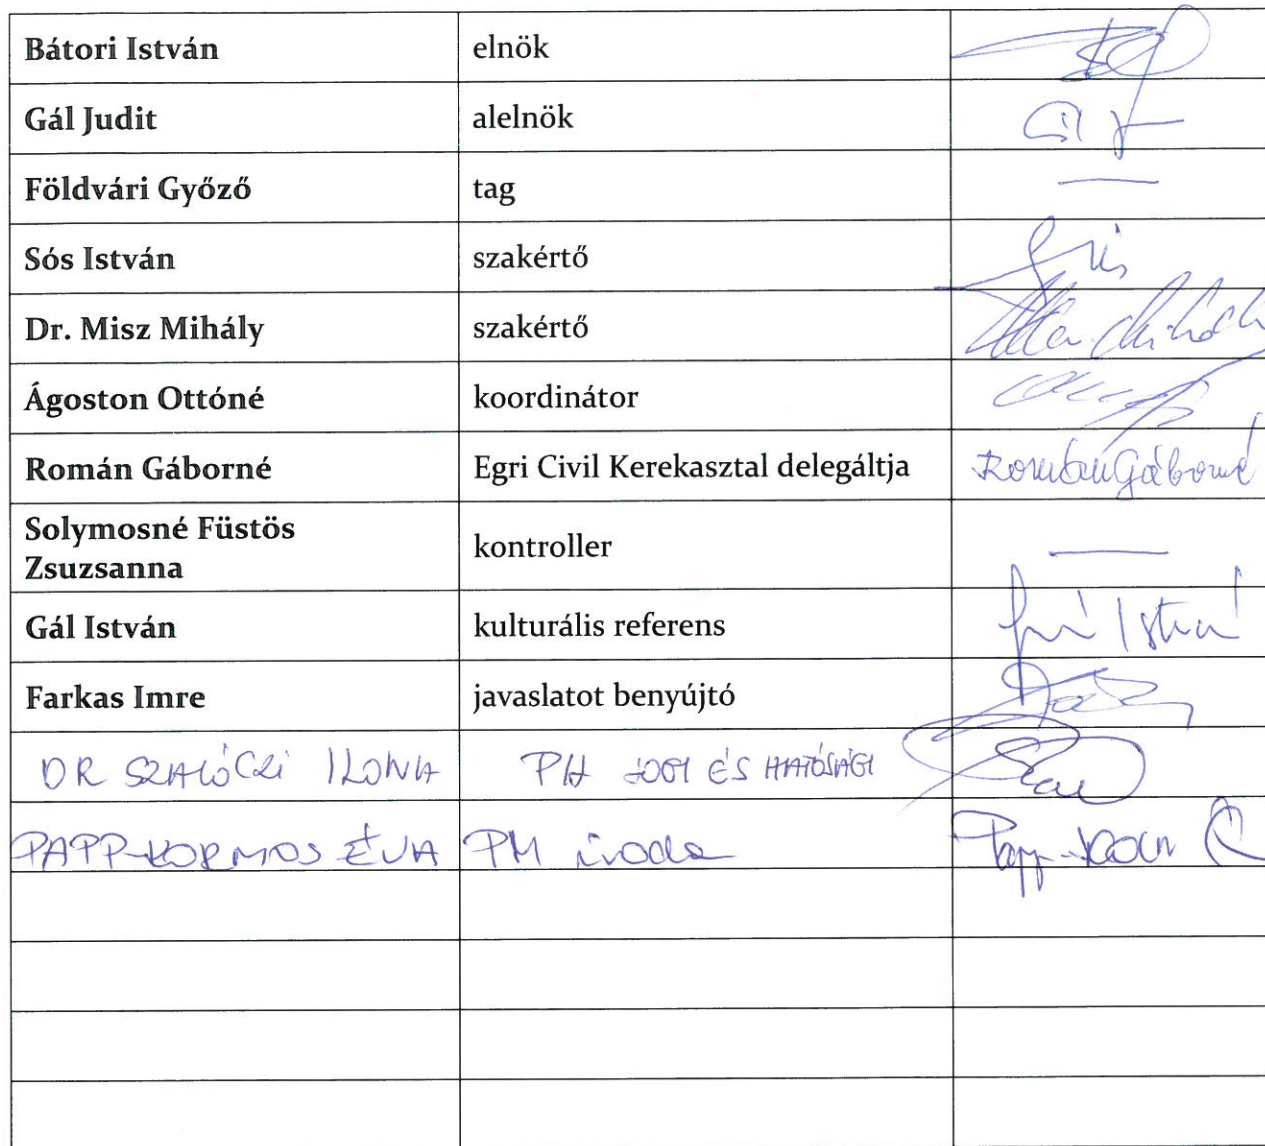 Bátori István elnök
Gál Judit alelnök
Földvári Győző tag
Sós István szakértő
Dr. Misz Mihály szakértő
Ágoston Ottóné koordinátor
Román Gáborné Egri Civil Kerekasztal delegáltja Román Gáborné
Solymosné Füstös
Zsuzsanna kontroller
Gál István kulturális referens
Farkas Imre javaslatot benyújtó
DR SZALÓCZI ILONA PH JOGI ÉS HATÓSÁGI
PAPP-KORMOS ÉVA PM iroda